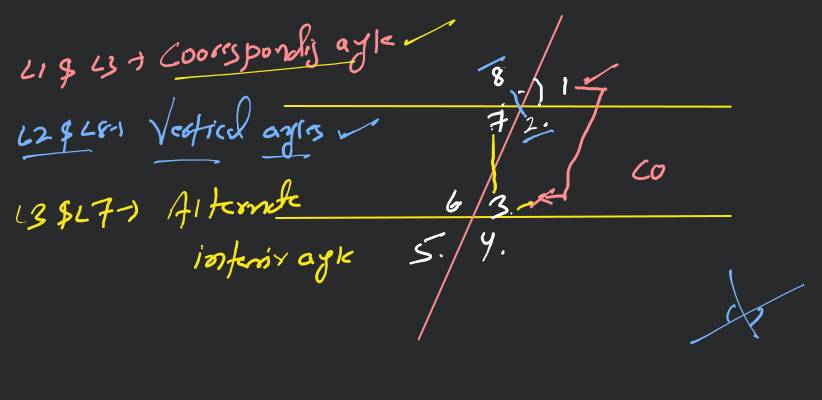 ∠1 & ∠3 → Coorespondig agle ✓
8 1
∠2 & ∠8 → Vertical agles ✓
7 2.
co
∠3 & ∠7 → Alternate
6 3.
interior agle
5. 4.